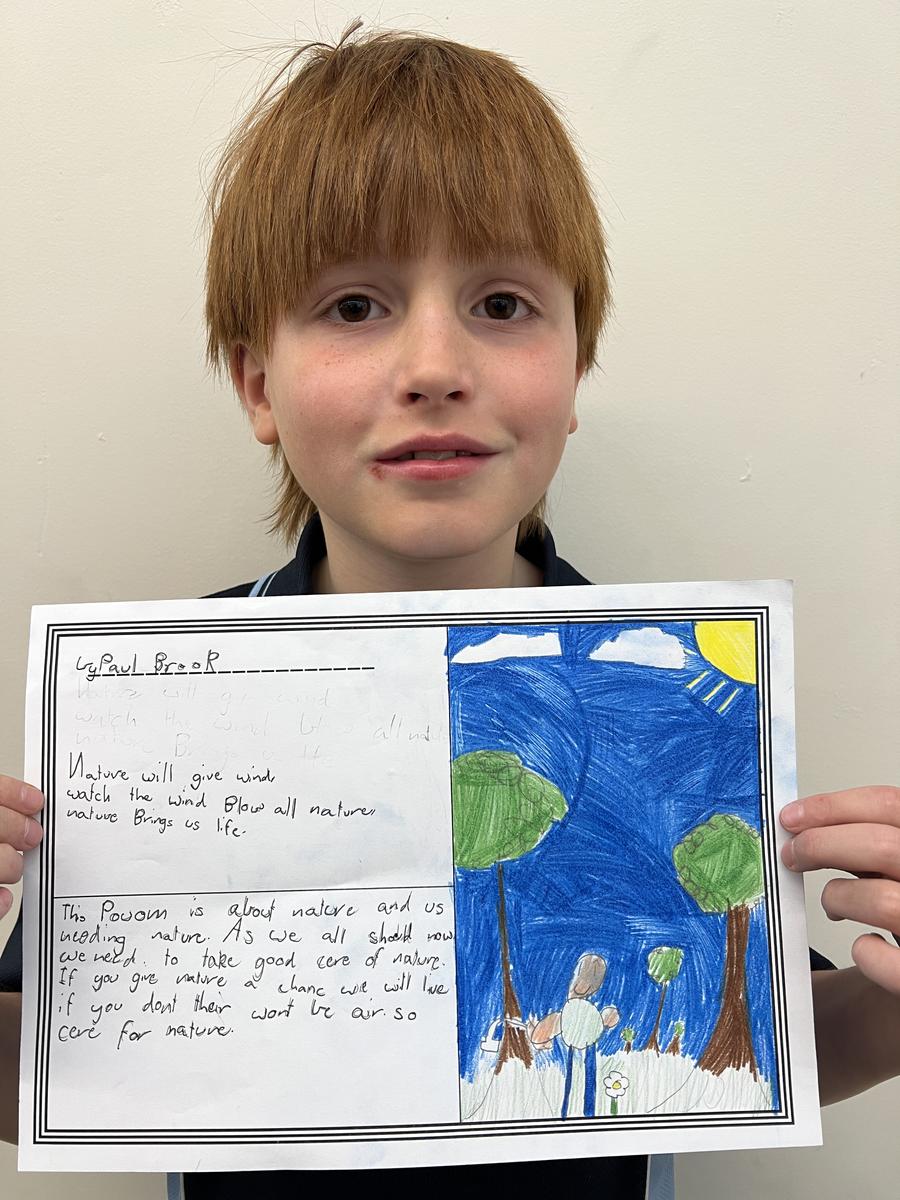 by Paul Brook
Nature will give wind
watch the wind blow all natu
nature Brings us life
Nature will give wind,
watch the wind Blow all nature,
nature Brings us life.
This Powom is about nature and us
needing nature. As we all should now
we need. to take good cere of nature.
If you give nature a chanc wie will live
if you dont their wont be air. so
cere for nature.